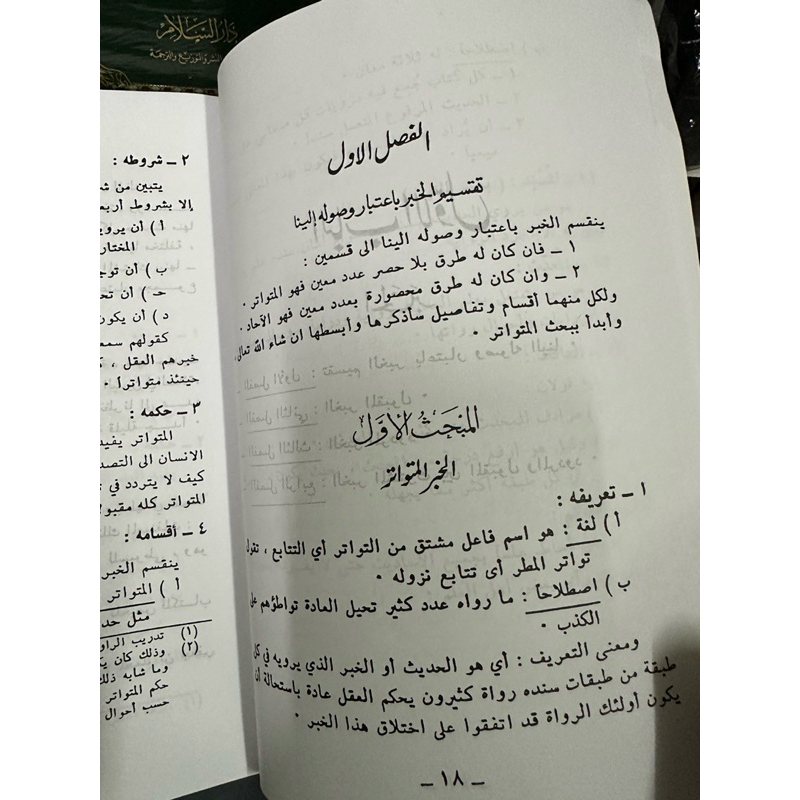 دار السلام
الفصل الاول
تقسيم الخبر باعتبار وصوله إلينا
ينقسم الخبر باعتبار وصوله الينا الى قسمين :
١ ــ فان كان له طرق بلا حصر عدد معين فهو المتواتر .
٢ ــ وان كان له طرق محصورة بعدد معين فهو الآحاد .
ولكل منهما أقسام وتفاصيل سأذكرها وأبسطها ان شاء الله تعالى ،
وأبدأ ببحث المتواتر .
المبحث الأول
الخبر المتواتر
١ ــ تعريفه :
أ ) لغة : هو اسم فاعل مشتق من التواتر أي التتابع ، تقول
تواتر المطر أى تتابع نزوله .
ب ) اصطلاحاً : ما رواه عدد كثير تحيل العادة تواطؤهم على
الكذب .
ومعنى التعريف : أي هو الحديث أو الخبر الذي يرويه في كل
طبقة من طبقات سنده رواة كثيرون يحكم العقل عادة باستحالة أن
يكون أولئك الرواة قد اتفقوا على اختلاق هذا الخبر .
ــ ١٨ ــ
٢ ــ شروطه :
يتبين من
إلا بشروط
أ ) أن
ب ) أن
حـ ) أن
د ) أن يكون
كقولهم
خبرهم العقل ،
حينئذ متواتراً .
٣ ــ حكمه :
المتواتر
الانسان الى
كيف لا يتردد في
المتواتر كله
٤ ــ أقسامه :
ينقسم الخبر
أ ) المتواتر
مثل
(١) تدريب
(٢) وذلك كان
وما شابه
حكم المتواتر
حسب أحوال